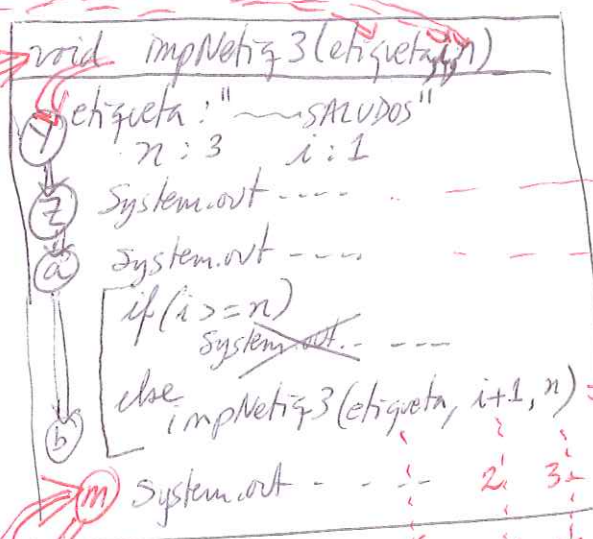 void impNetiq3(etiqueta, i, n)
Y etiqueta : "~~SALUDOS"
n : 3 i : 1
Z System.out ----
a System.out ----
if (i >= n)
System.out. - ---
else
b impNetiq3(etiqueta, i+1, n)
m System.out - - - - 2 3